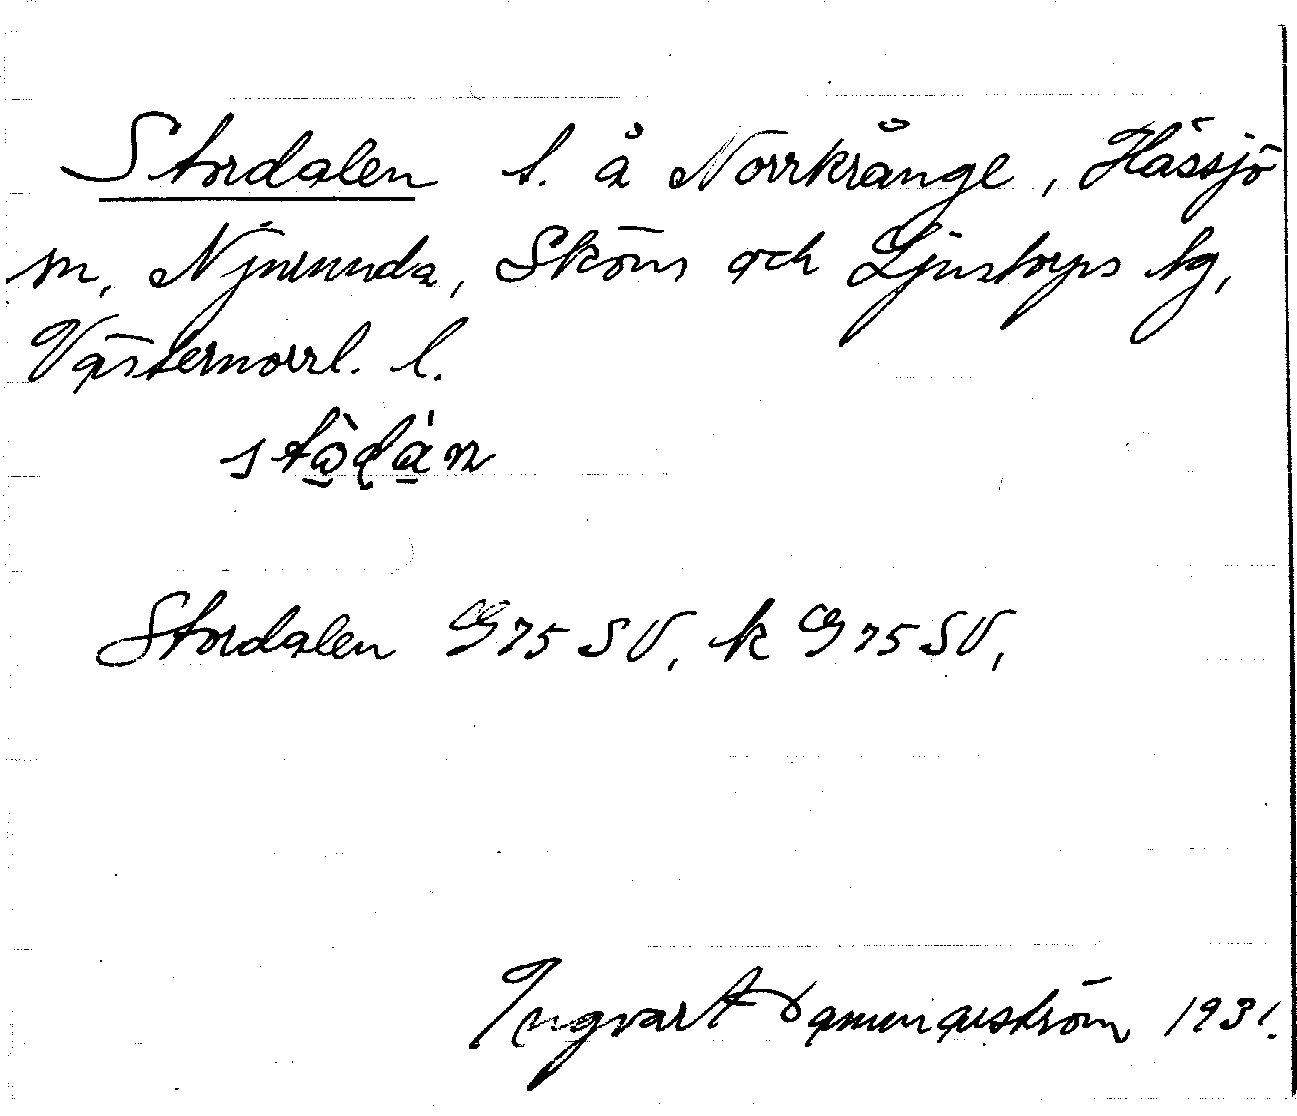 Stordalen t. å Norrkrånge, Hässjö
sn, Njurunda, Sköns och Ljustorps tg,
Västernorrl. l.
stò̱ḍa̱´n
Stordalen G75SV, k G75SV,
Ingvart 1931.